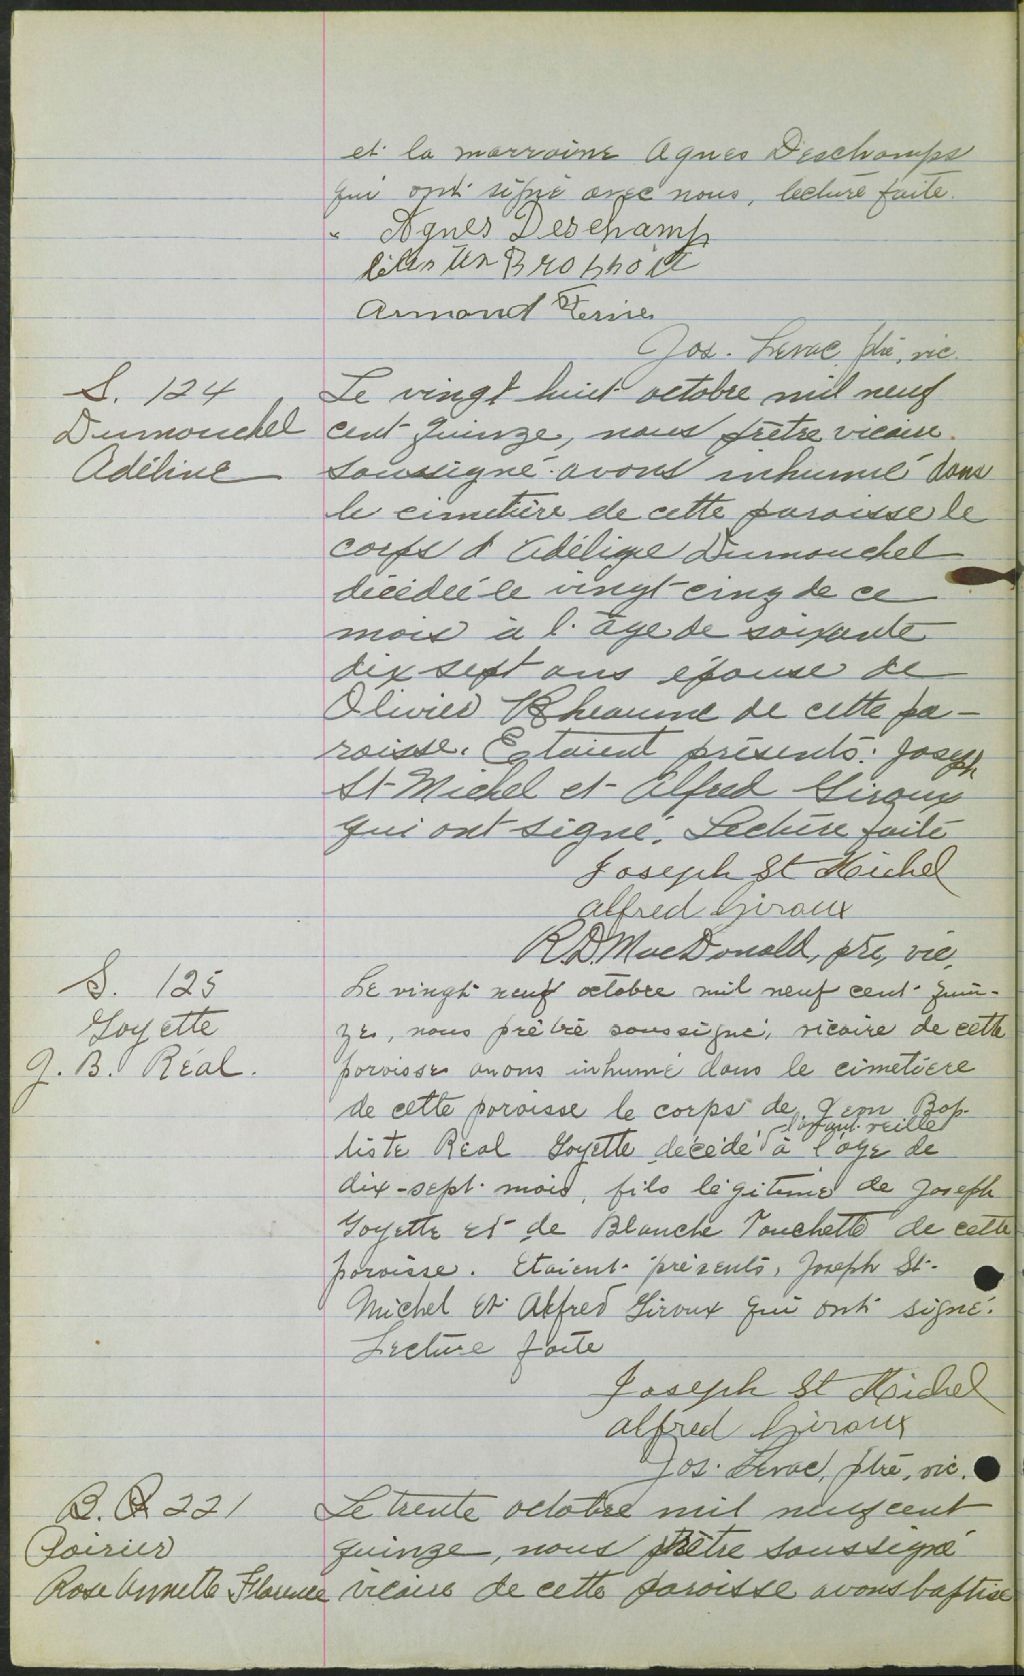 et la marraine Agnes Deschamps
qui ont signé avec nous, lecture faite.
Agnes Deschamp
Armand
Jos. Levac, ptre, vic.
S. 124
Dumouchel
Adéline
Le vingt huit octobre mil neuf
cent quinze, nous prêtre vicaire
soussigné avons inhumé dans
le cimetière de cette paroisse le
corps d'Adéline Dumouchel
décédée le vingt-cinq de ce
mois à l'âge de soixante
dix sept ans épouse de
Olivier Rheaume de cette pa-
roisse. Etaient présents: Joseph
St-Michel et Alfred Giroux
qui ont signé. Lecture faite
Joseph St Michel
Alfred Giroux
R.D. MacDonald, ptre, vic.
S. 125
Goyette
J. B. Réal.
Le vingt neuf octobre mil neuf cent quin-
ze, nous prêtre soussigné, vicaire de cette
paroisse avons inhumé dans le cimetière
de cette paroisse le corps de Jean Bap-
tiste Réal Goyette décédé l'avant-veille à l'âge de
dix-sept mois, fils légitime de Joseph
Goyette et de Blanche Touchette de cette
paroisse. Etaient présents, Joseph St-
Michel et Alfred Giroux qui ont signé.
Lecture faite
Joseph St Michel
Alfred Giroux
Jos. Levac, ptre, vic.
B. 221
Poirier
Rose Annette Florence
Le trente octobre mil neuf cent
quinze, nous prêtre soussigné
vicaire de cette paroisse avons baptisé